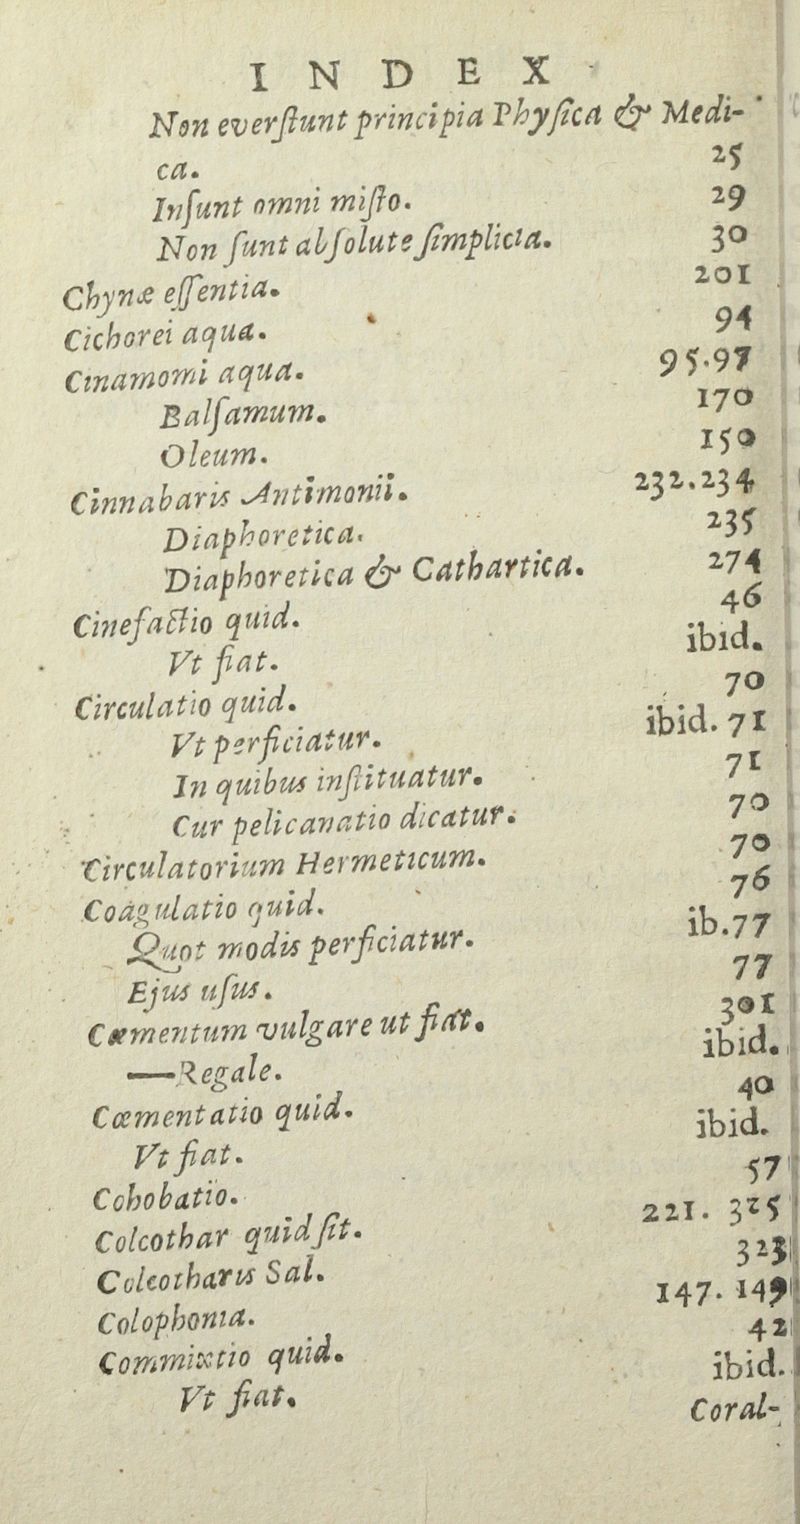 INDEX
Non everſtunt principia Phyſica & Medi-
ca. 25
Inſunt omni miſto. 29
Non ſunt abſolute ſimplicia. 30
Chynæ eſſentia. 201
Cichorei aqua. 94
Cinamomi aqua. 95.97
Balſamum. 170
Oleum. 150
Cinnabaris Antimonii. 232.234
Diaphoretica. 235
Diaphoretica & Cathartica. 274
Cinefactio quid. 46
Vt fiat. ibid.
Circulatio quid. 70
Vt perficiatur. ibid. 71
In quibus inſtituatur. 71
Cur pelicanatio dicatur. 70
Circulatorium Hermeticum. 70
Coagulatio quid. 76
Quot modis perficiatur. ib.77
Ejus uſus. 77
Cæmentum vulgare ut fiat. 301
—Regale. ibid.
Cœmentatio quid. 40
Vt fiat. ibid.
Cohobatio. 57
Colcothar quid ſit. 221. 325
Colcotharis Sal. 323
Colophonia. 147. 149
Commixtio quid. 42
Vt fiat. ibid.
Coral-